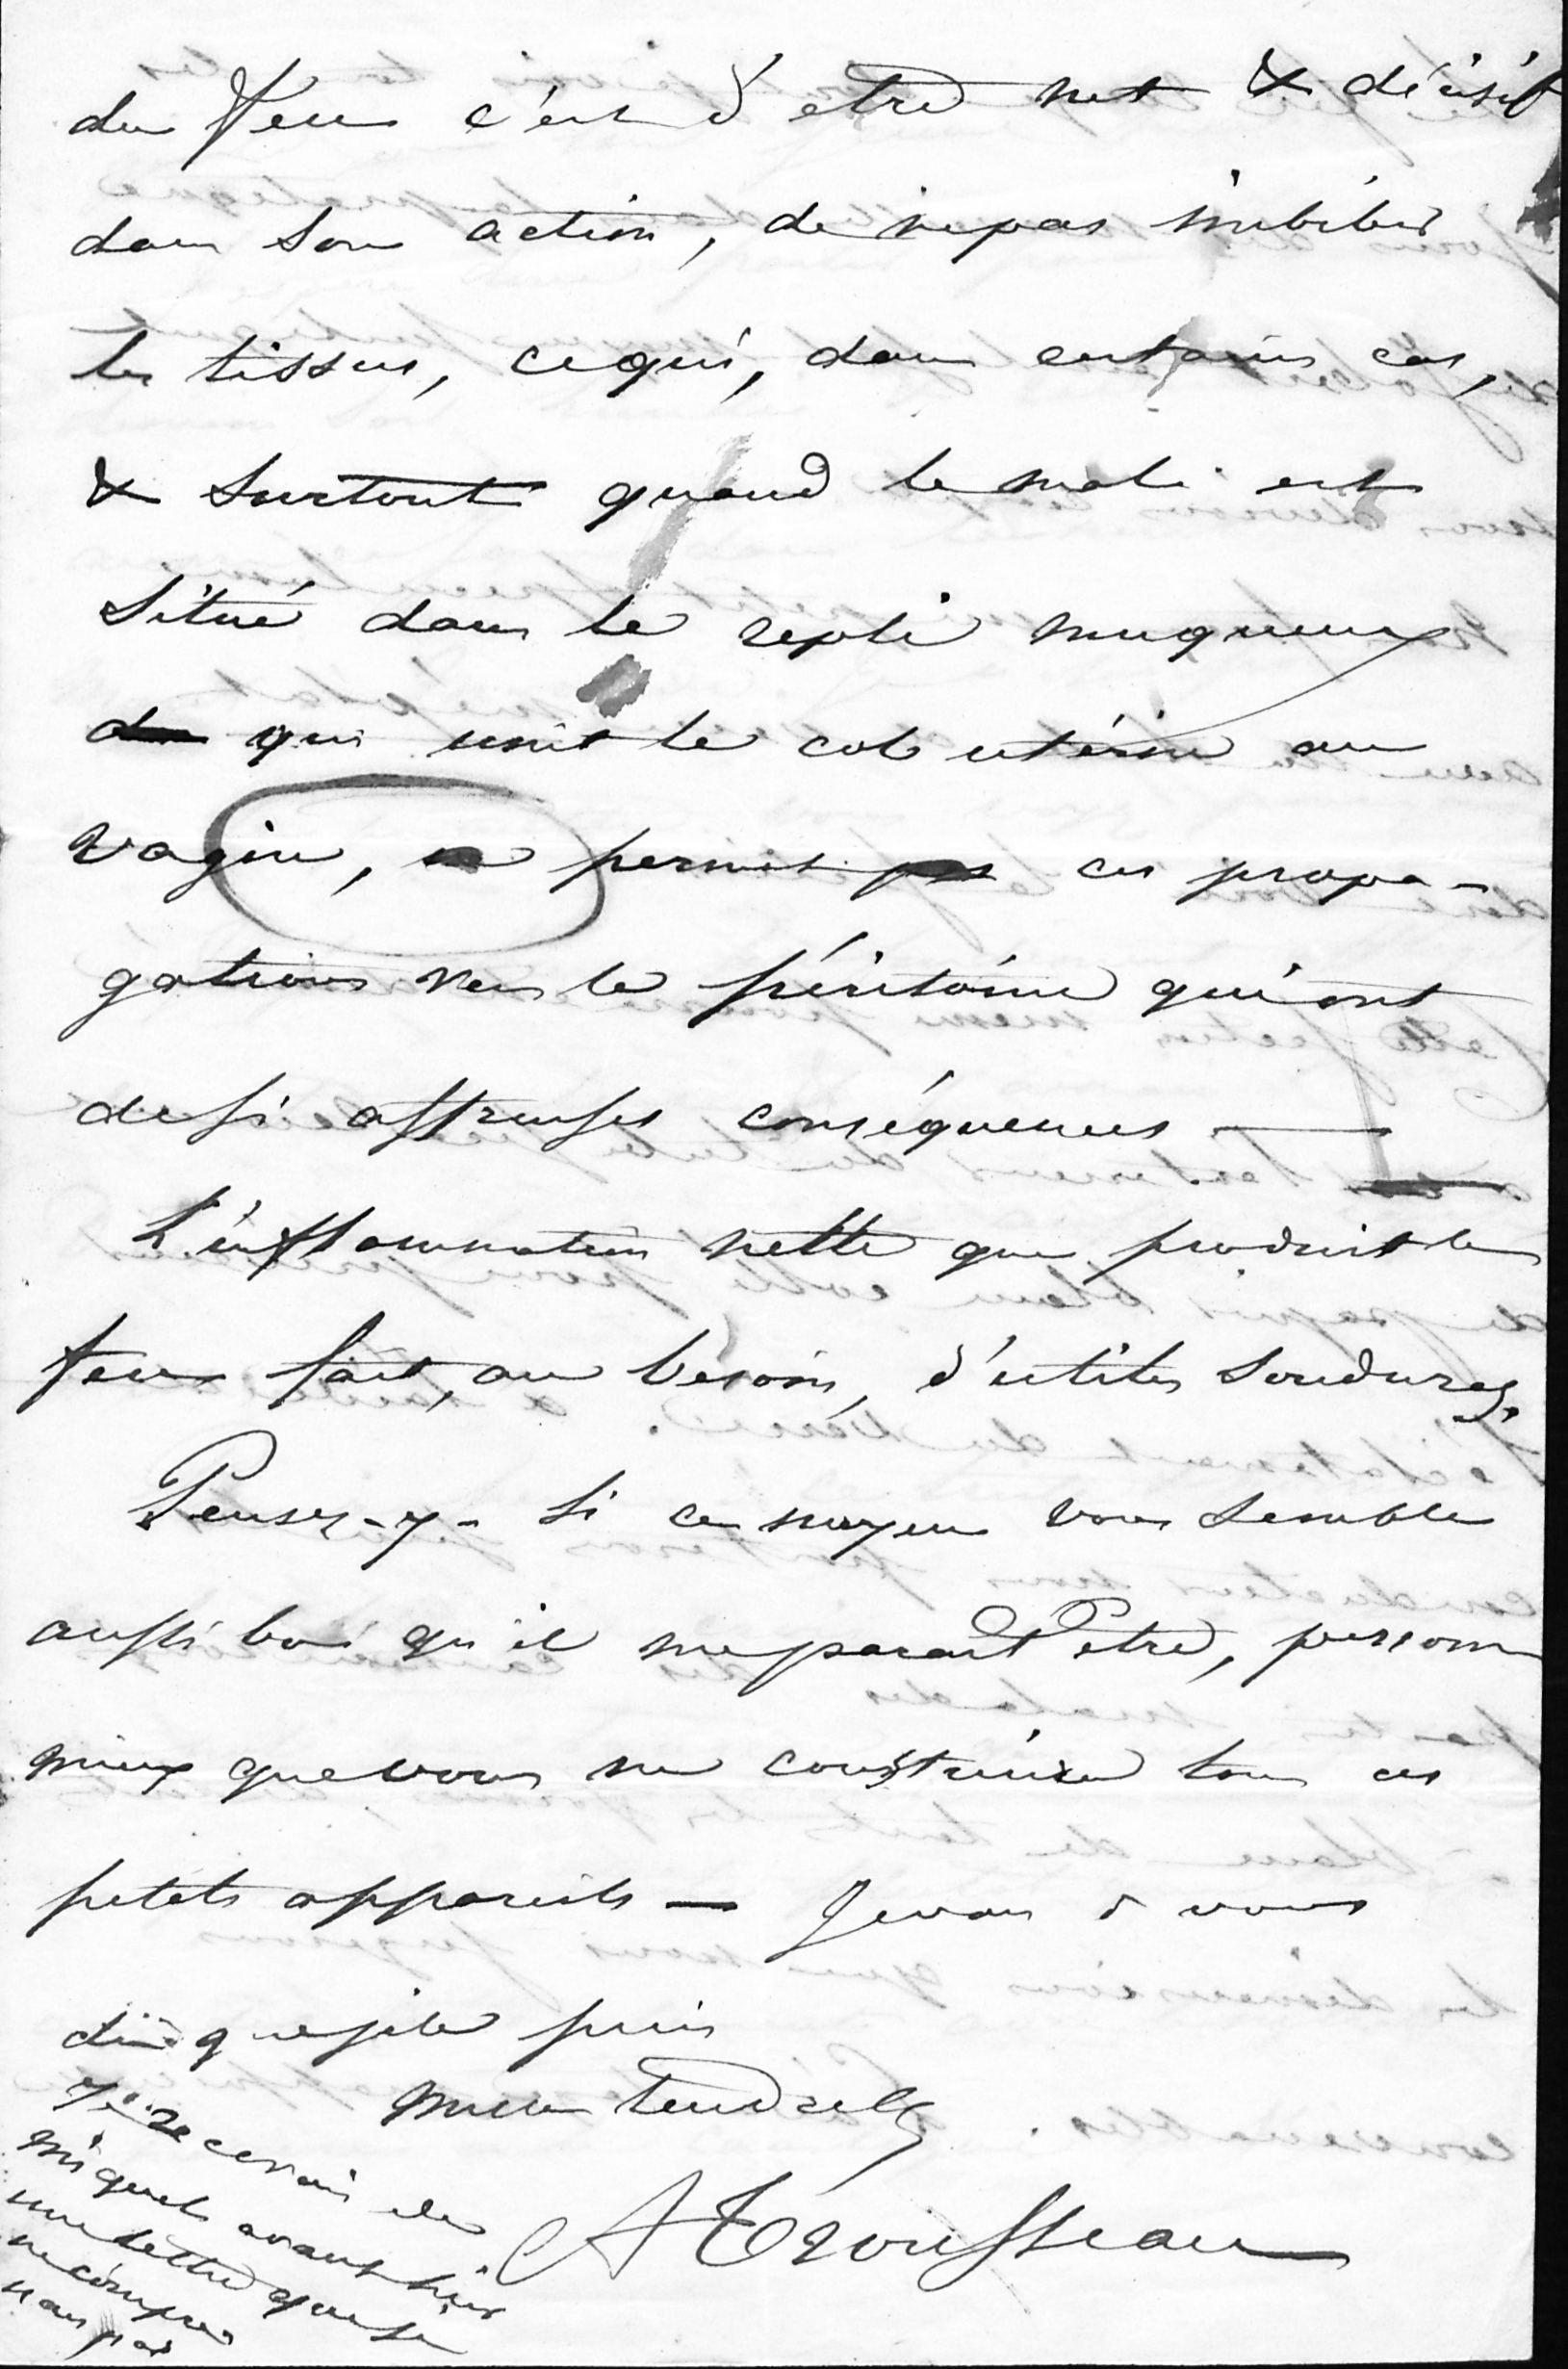 du feu c'est d'etre net & décisif
dans son action, de ne pas imbiber
les tissus, ce qui, dans certains cas,
& surtout quand le mal est
situé dans le repli muqueux
qui unit le col utérin au
vagin, permet ces propa-
gations vers le péritoine qui ont
de si affreuses conséquences —
L'inflammation nette que produit le
feu fait, au besoin, d'utiles soudures.
Pensez-y - si ce moyen vous semble
aussi bon qu'il me parait etre, personne
mieux que vous ne construira tous ces
petits appareils — Je vous
dis que je le puis
mille tendresses
A Trousseau
Je recevais de
Miquel avant hier
une lettre que je
ne compre
nais pas